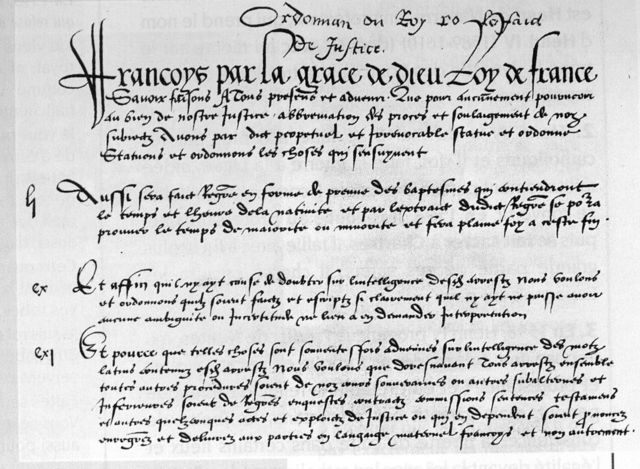 Ordonnan du Roy ro le faict
De Justice.
Francoys par la grace de dieu Roy de france
Savoir faisons A Tous presens et advenir. Que pour aucunement pourveoir
au bien de nostre Justice abbreviation des proces et soulaigement de noz
subiectz Avons par dict perpetuel et Irrevocable statue et ordonne
Statuons et ordonnons les choses qui sensuyvent
Aussi sera faict Regre en forme de preuve des baptesmes qui contiendront
le temps et lheure dela nativite et par lextraict dudict Regre se pourra
prouver le temps de maiorite ou minorite et fera plaine foy a ceste fin
ex Et affin quil ny ayt cause de doubter sur lintelligence desd arrestz Nous voulons
et ordonnons quilz soient faictz et escriptz si clairement quil ny ayt ne puisse avoir
aucune ambiguite ou Incertitude ne lieu a en demander Interpretation
exi Et pource que telles choses sont souventesfois advenues sur lintelligence des motz
latins contenuz esd arrestz Nous voulons que doresnavant Tous arrestz ensemble
toutes autres procedures soient de noz cours souveraines ou autres subalternes et
Inferieures soient de Regres enquestes contractz commissions sentences testamens
et autres quelzconques actes et exploictz de Justice ou qui en dependent soient pnoncez
enregrez et delivrez aux parties en langaige maternel francoys et non autrement